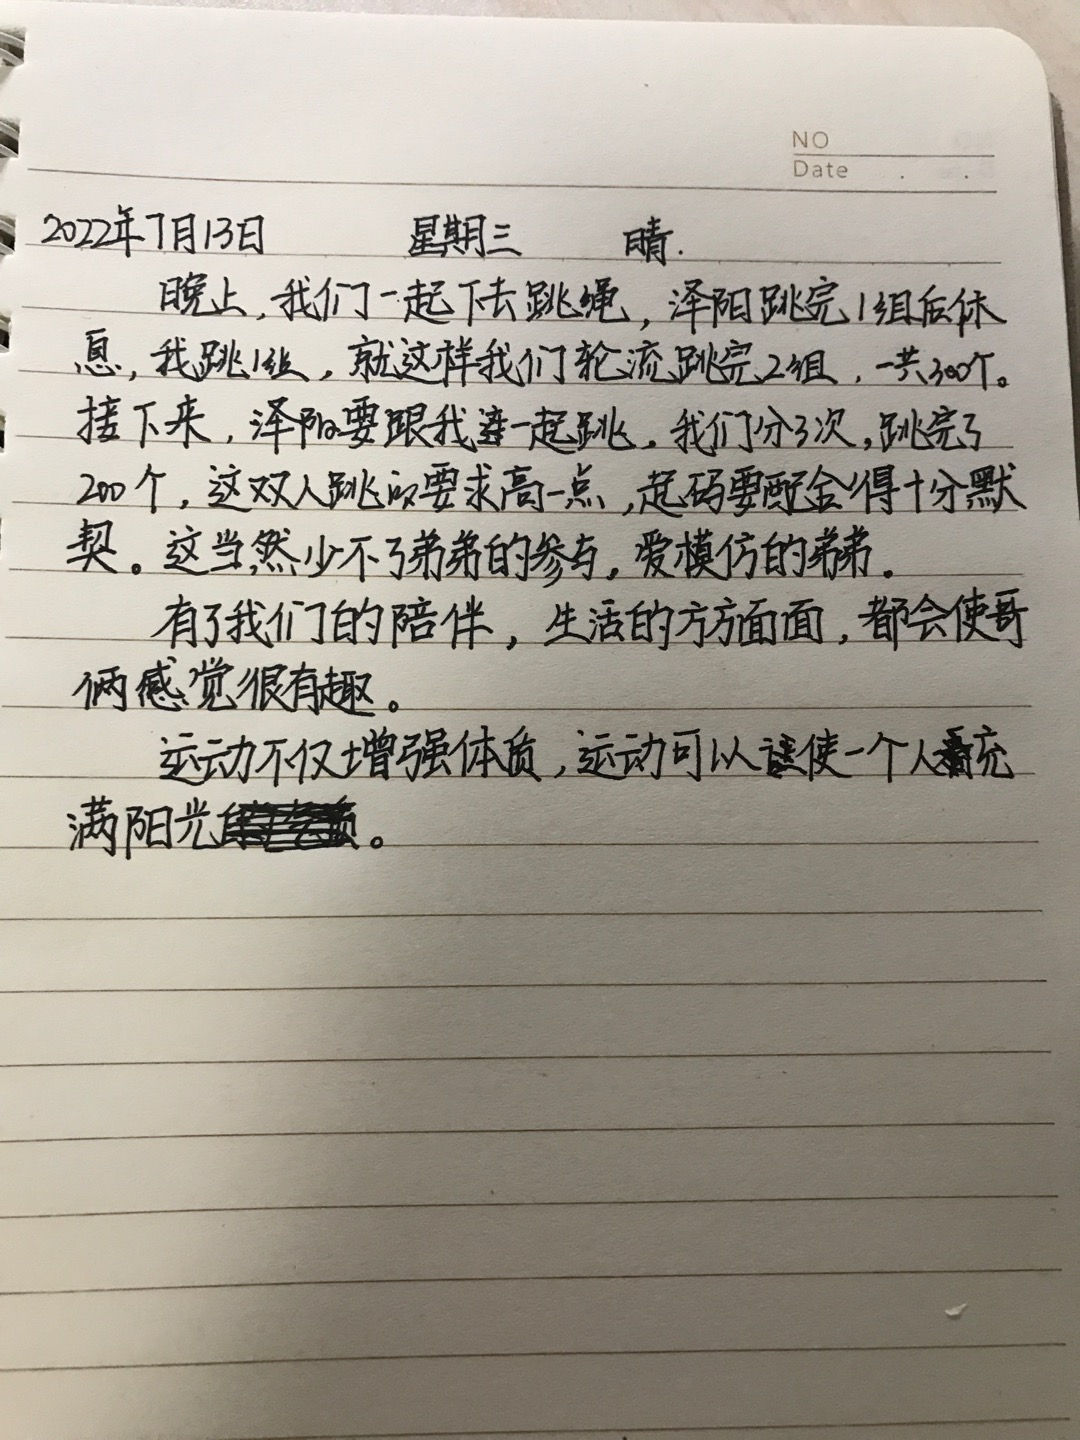 NO
Date . .
2022年7月13日 星期三 晴.
晚上,我们一起下去跳绳,泽阳跳完1组后休
息,我跳1组,就这样我们轮流跳完2组,一共300个。
接下来,泽阳要跟我一起跳,我们分3次,跳完了
200个,这双人跳的要求高一点,起码要配合得十分默
契。这当然少不了弟弟的参与,爱模仿的弟弟.
有了我们的陪伴,生活的方方面面,都会使哥
俩感觉很有趣。
运动不仅增强体质,运动可以使一个人充
满阳光。